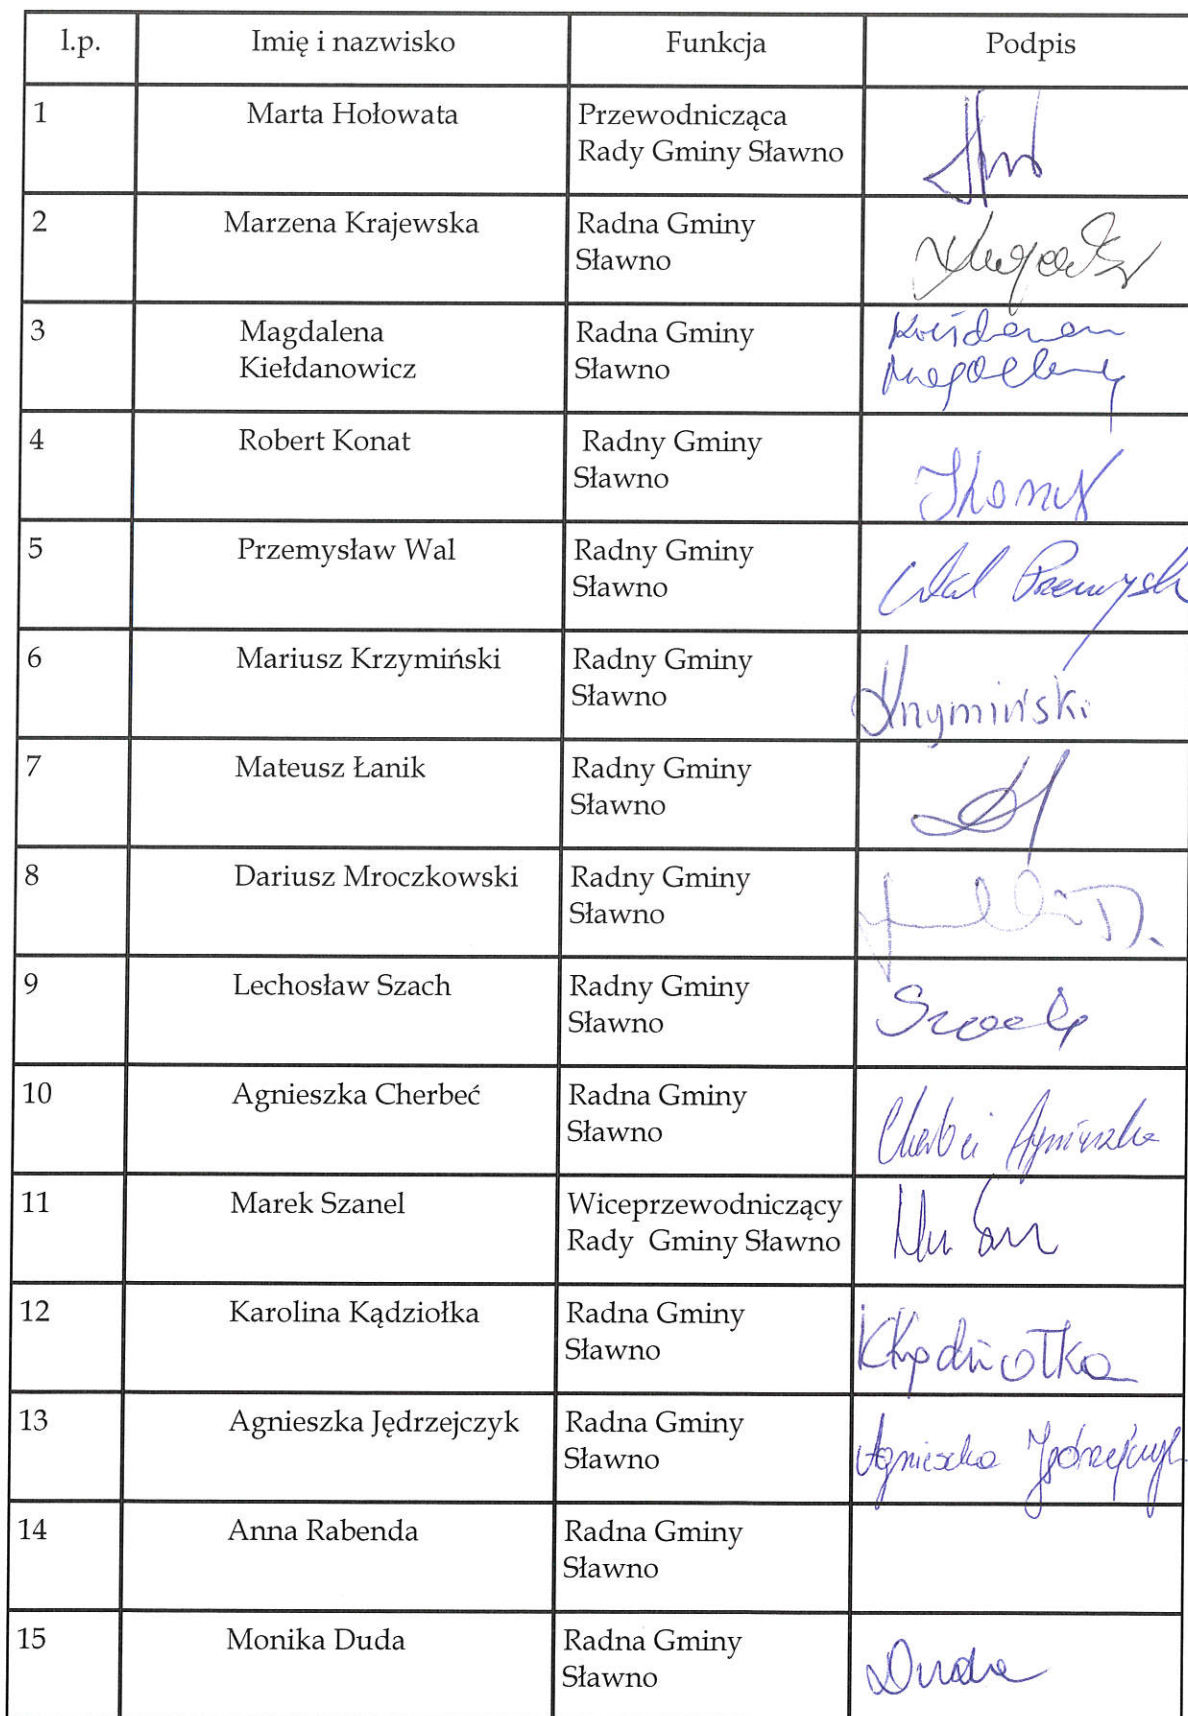 l.p. Imię i nazwisko Funkcja Podpis
1 Marta Hołowata Przewodnicząca
Rady Gminy Sławno
2 Marzena Krajewska Radna Gminy
Sławno
3 Magdalena Radna Gminy
Kiełdanowicz Sławno
Magdalena
4 Robert Konat Radny Gminy
Sławno
5 Przemysław Wal Radny Gminy
Sławno Wal Przemysł
6 Mariusz Krzymiński Radny Gminy
Sławno Krzymiński
7 Mateusz Łanik Radny Gminy
Sławno
8 Dariusz Mroczkowski Radny Gminy
Sławno
9 Lechosław Szach Radny Gminy
Sławno Szach
10 Agnieszka Cherbeć Radna Gminy
Sławno Cherbeć Agnieszka
11 Marek Szanel Wiceprzewodniczący
Rady Gminy Sławno
12 Karolina Kądziołka Radna Gminy
Sławno KKądziołka
13 Agnieszka Jędrzejczyk Radna Gminy
Sławno Agnieszka Jędrzejczyk
14 Anna Rabenda Radna Gminy
Sławno
15 Monika Duda Radna Gminy
Sławno Duda